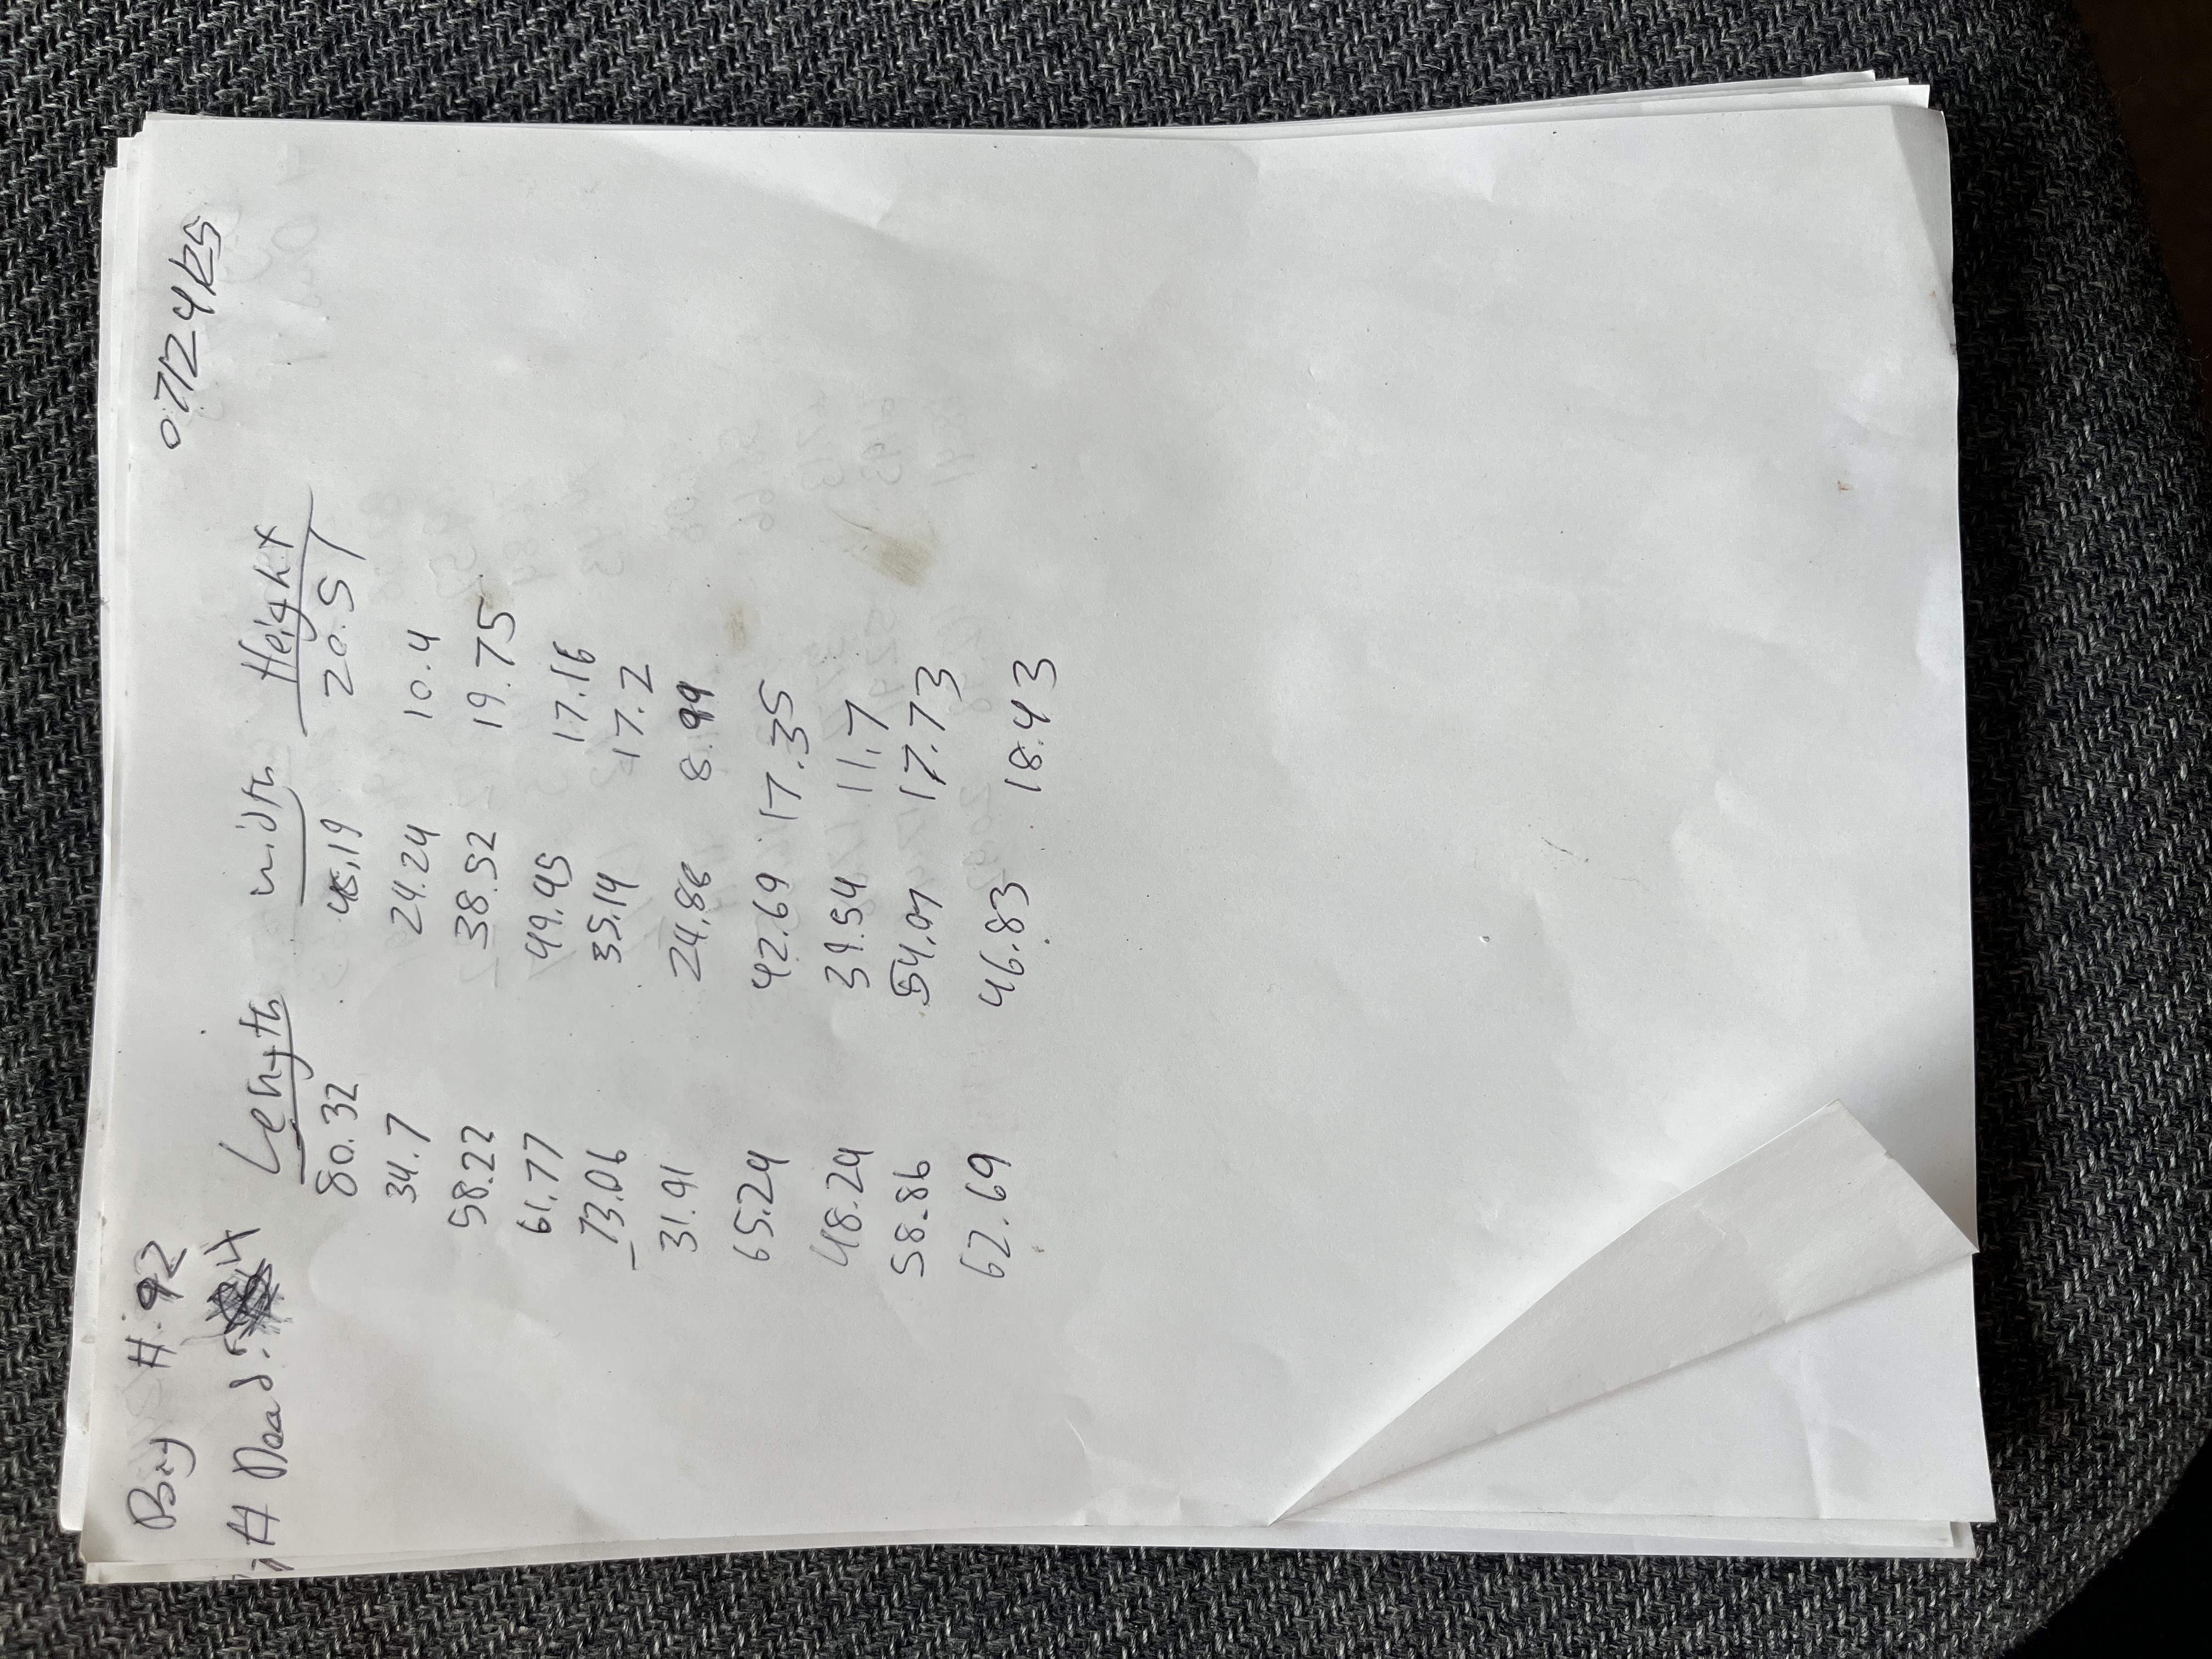 Bag #.92
07/24/25
# Dead: 4
Length width Height
80.32 45.19 20.51
34.7 24.24 10.4
58.22 38.52 19.75
61.77 49.45 17.16
73.06 35.14 17.2
31.91 24.86 8.99
65.24 42.69 17.35
48.24 39.54 11.7
58.86 54.07 17.73
62.69 46.83 18.43